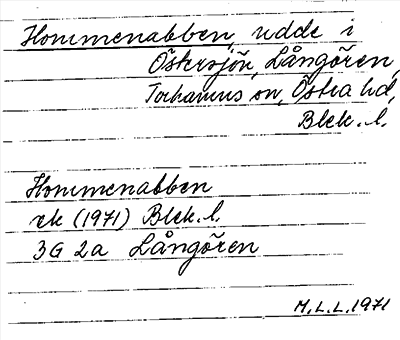 Hommenabben, udde i
Östersjön, Långören,
Torhamns sn, Östra hd,
Blek. l.
Hommenabben
ek (1971) Blek. l.
3G 2a Långören
M.L.L. 1971